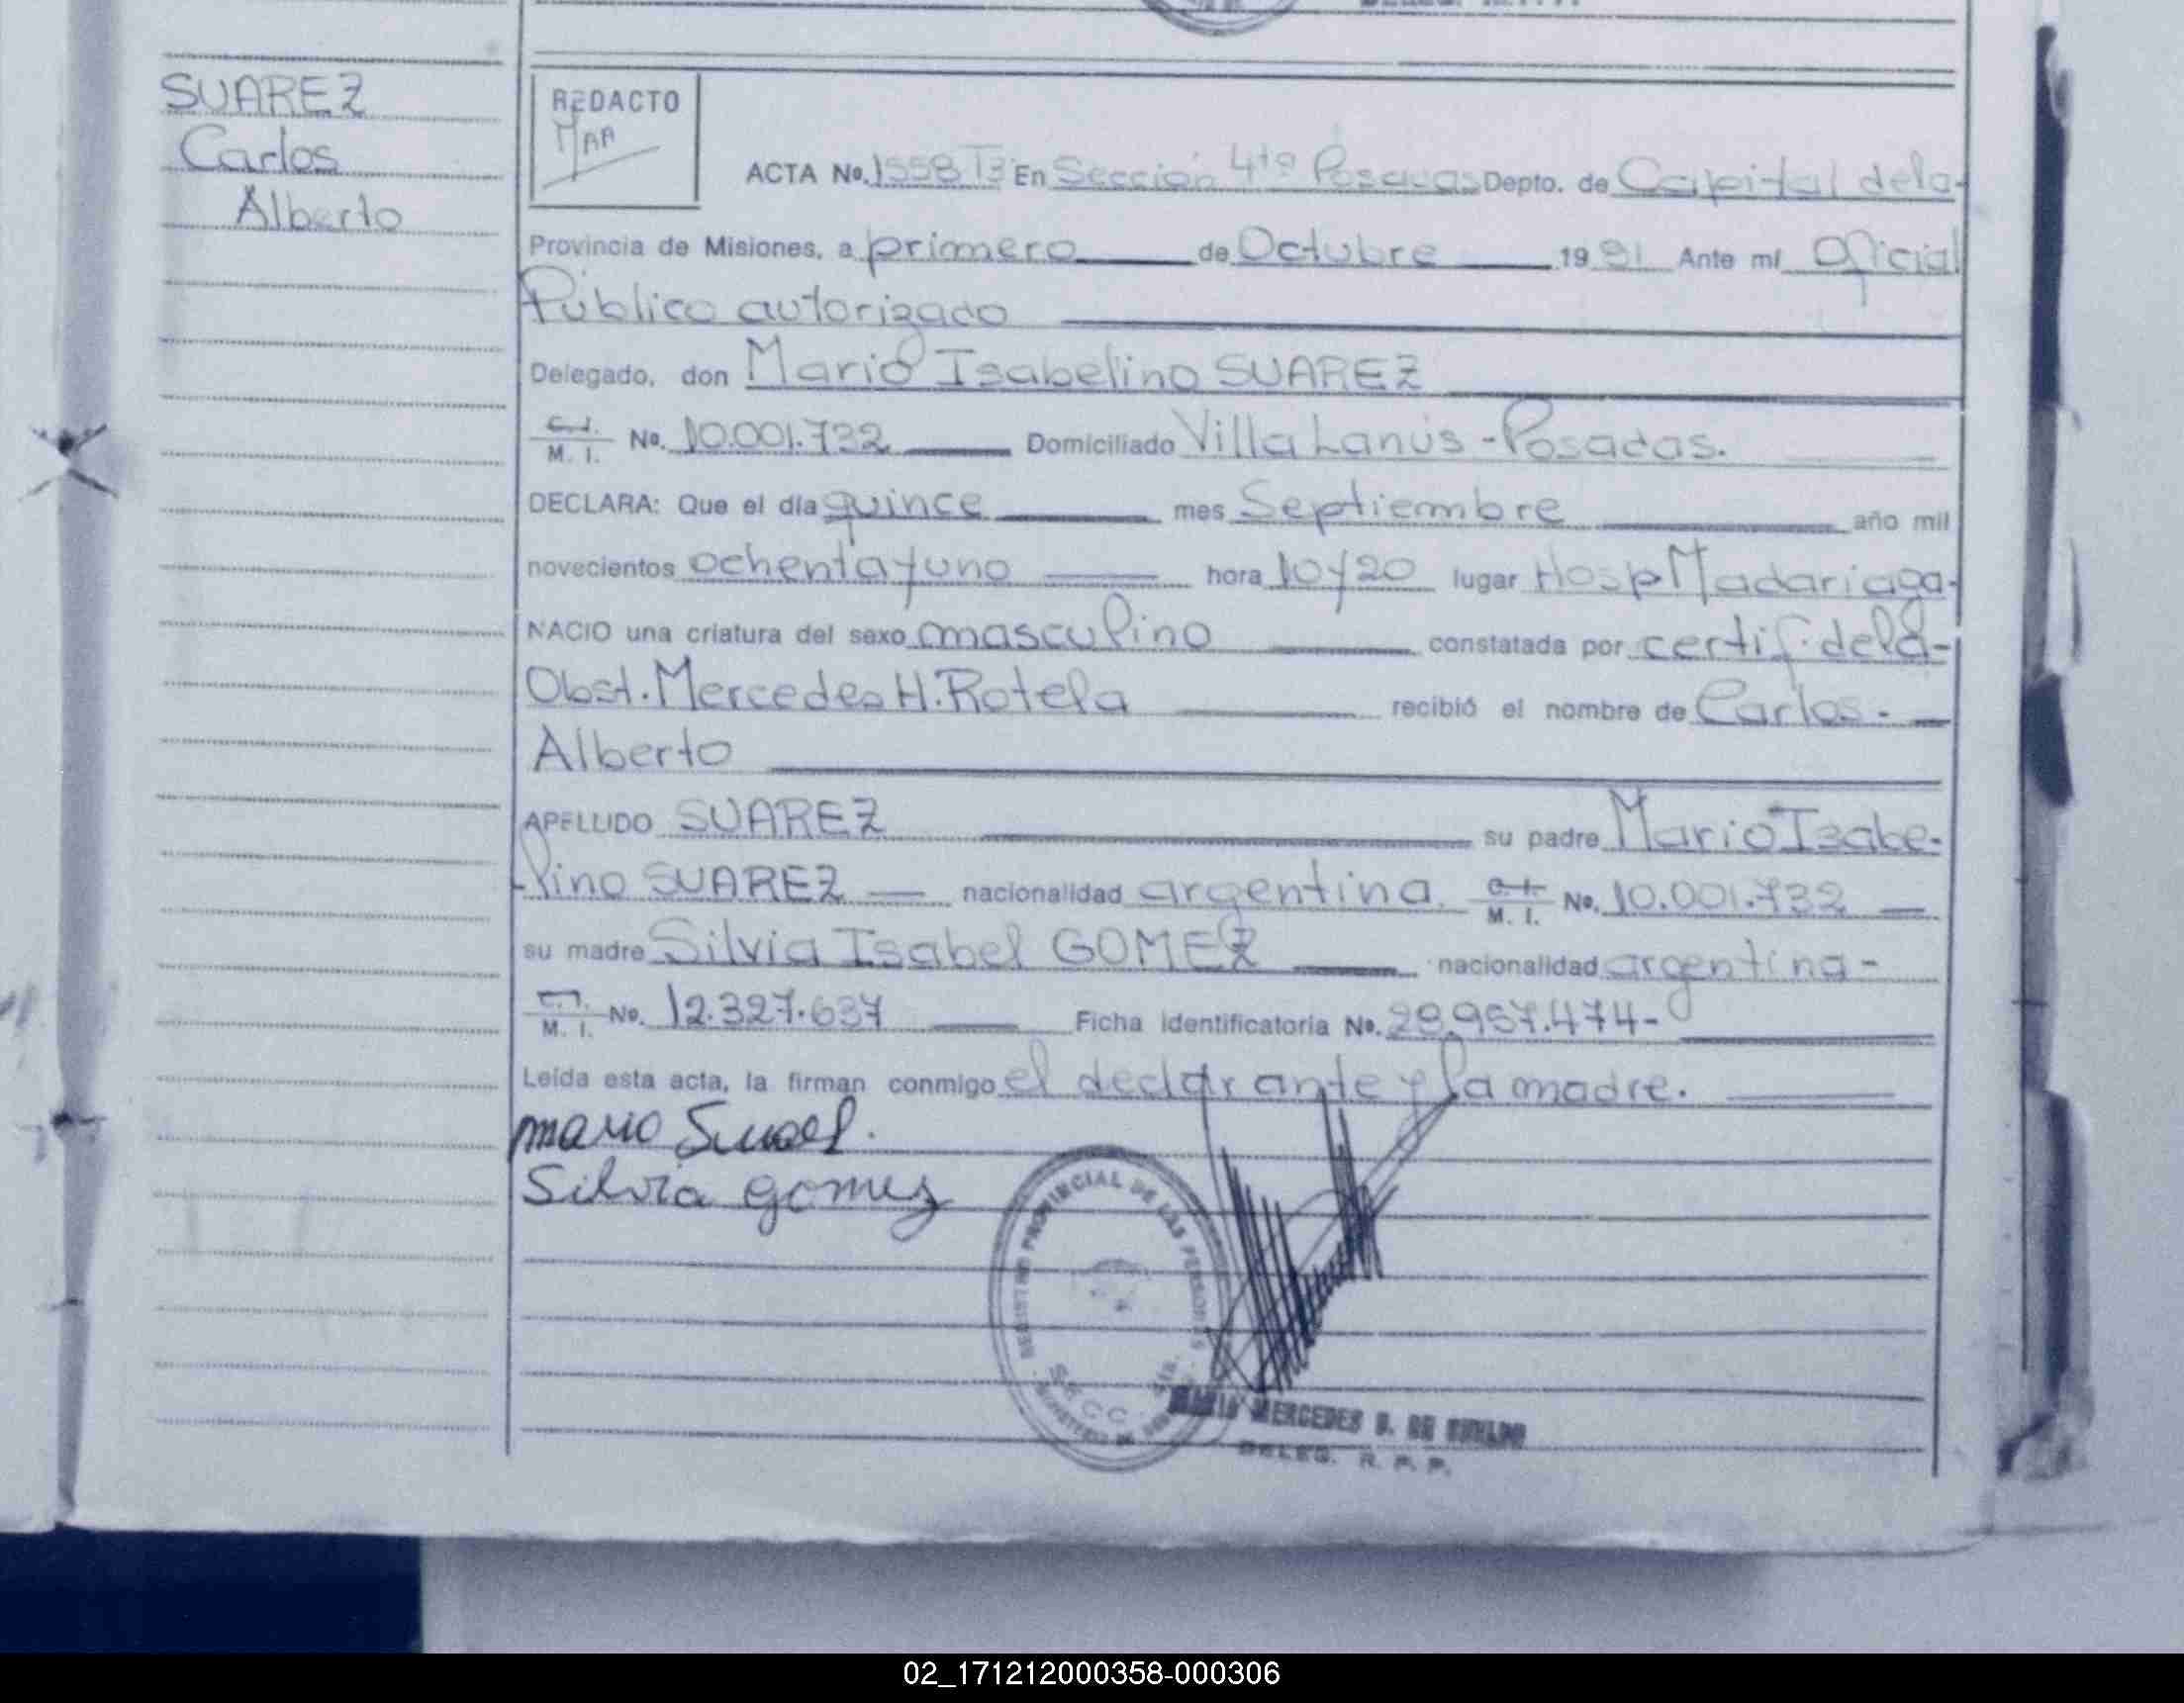 SUAREZ
Carlos
Alberto
REDACTO
ACTA No. 1558 T3 En Sección 4ta Posadas Depto. de Capital de la-
Provincia de Misiones, a primero de Octubre 1981 Ante mí Oficial
Público autorizado
Delegado, don Mario Isabelino SUAREZ
C. I.
M. I. No. 10.001.732 Domiciliado Villa Lanús - Posadas.
DECLARA: Que el día quince mes Septiembre año mil
novecientos ochenta y uno hora 10 y 20 lugar Hosp Madariaga-
NACIO una criatura del sexo masculino constatada por certif. de la-
Obst. Mercedes H. Rotela recibió el nombre de Carlos -
Alberto
APELLIDO SUAREZ su padre Mario Isabe-
-lino SUAREZ nacionalidad argentina. C. I. M. I. No. 10.001.732
su madre Silvia Isabel GOMEZ nacionalidad argentina -
C. I.
M. I. No. 12.327.637 Ficha identificatoria No. 28.957.474-
Leída esta acta, la firman conmigo el declarante y la madre.
mario Suarez.
Silvia gomez
REGISTRO PROVINCIAL DE LAS PERSONAS
SECC. 4ta.
MERCEDES
DELEG. R. P. P.
02_171212000358-000306